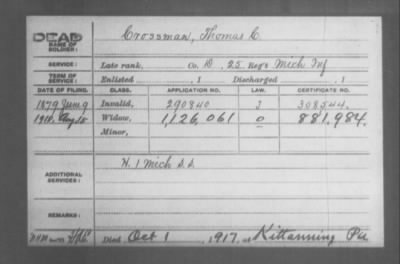 DEAD
NAME OF SOLDIER: Crossman, Thomas C.
SERVICE: Late rank, Co. D, 25 Reg't Mich Inf
TERM OF SERVICE: Enlisted , 1 Discharged , 1
DATE OF FILING. CLASS. APPLICATION NO. LAW. CERTIFICATE NO.
1879 Jun 9 Invalid, 290840 J 308544.
Aug 15 Widow, 1,126,061 O 881,984.
Minor,
ADDITIONAL SERVICES: H. 1 Mich S.S.
REMARKS:
Died Oct 1, 1917, at Kittanning Pa